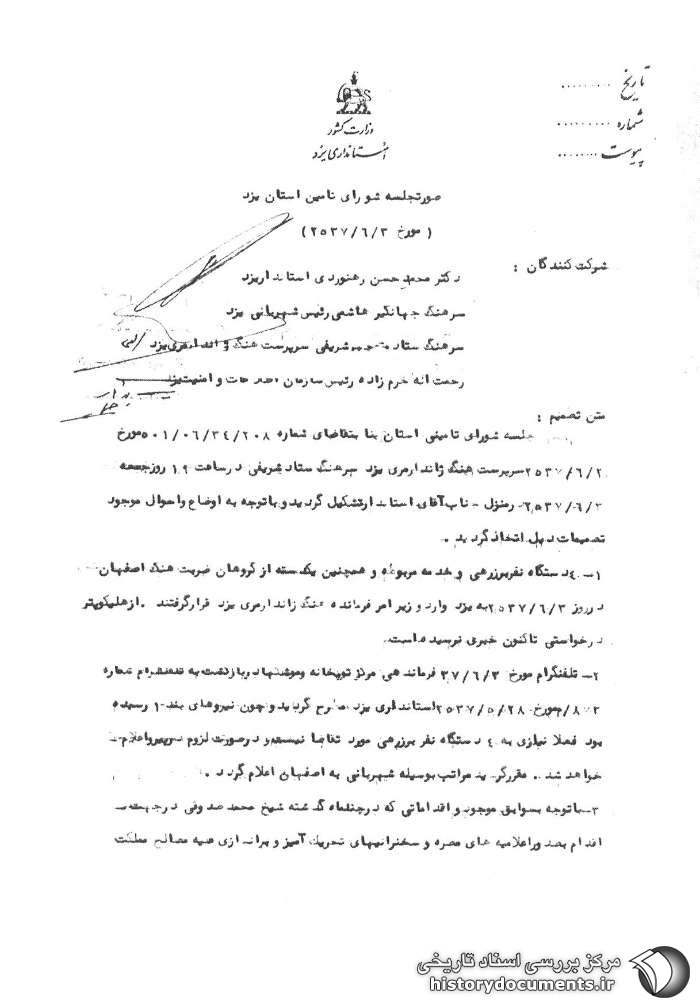 تاریخ ..........
شماره ..........
پیوست ........
وزارت کشور
استانداری یزد
صورتجلسه شورای تامین استان یزد
( مورخ ۲۵۳۷/۶/۳ )
شرکت کنندگان :
دکتر محمد حسن رهنوردی استاندار یزد
سرهنگ جهانگیر هاشمی رئیس شهربانی یزد
سرهنگ ستاد شریفی سرپرست هنگ ژاندارمری یزد
رحمت اله خرم زاده رئیس سازمان اطلاعات و امنیت یزد
متن تصمیم :
جلسه شورای تامینی استان بنا بتقاضای شماره ۵۰۱/۰۶/۳۴/۲۰۸ مورخ
۲۵۳۷/۶/۲ سرپرست هنگ ژاندارمری یزد سرهنگ ستاد شریفی در ساعت ۱۹ روز جمعه
۲۵۳۷/۶/۳ در منزل جناب آقای استاندار تشکیل گردید و باتوجه به اوضاع و احوال موجود
تصمیمات ذیل اتخاذ گردید .
۱-۴ دستگاه نفربر زرهی و خدمه مربوطه و همچنین یکدسته از گروهان ضربت هنگ اصفهان
در روز ۲۵۳۷/۶/۳ به یزد وارد و زیر امر فرمانده هنگ ژاندارمری یزد قرار گرفتند . از هلیکوپتر
درخواستی تاکنون خبری نرسیده است.
۲- تلفنگرام مورخ ۳۷/۶/۳ فرماندهی مرکز توپخانه و موشکها در بازگشت به تلفنگرام شماره
مورخ ۲۵۳۷/۵/۲۸ استانداری یزد مطرح گردید و چون نیروهای بند ۱ رسیده
بود فعلا نیازی به ۴ دستگاه نفربر زرهی مورد تقاضا نیست و در صورت لزوم اعلام
خواهد شد . مقرر گردید مراتب بوسیله شهربانی به اصفهان اعلام گردد .
۳- باتوجه بسوابق موجود و اقداماتی که در چند ماه گذشته شیخ محمد صدوقی در جهت
اقدام بصدور اعلامیه های مضره و سخنرانیهای تحریک آمیز و براندازی علیه مصالح مملکت
مرکز بررسی اسناد تاریخی
historydocuments.ir